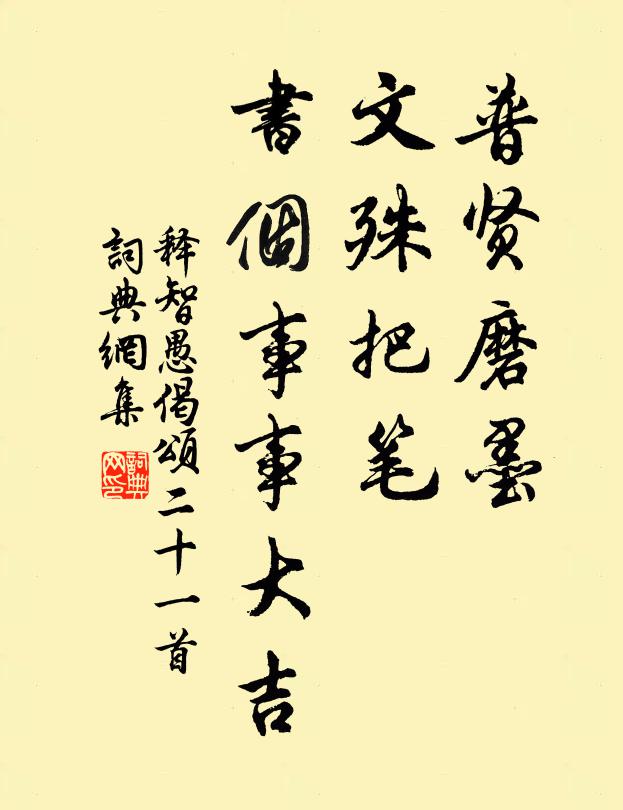 普贤磨墨
文殊把笔
書個事事大吉
释智愚偈頌二十一首
詞典網集
詞典网印